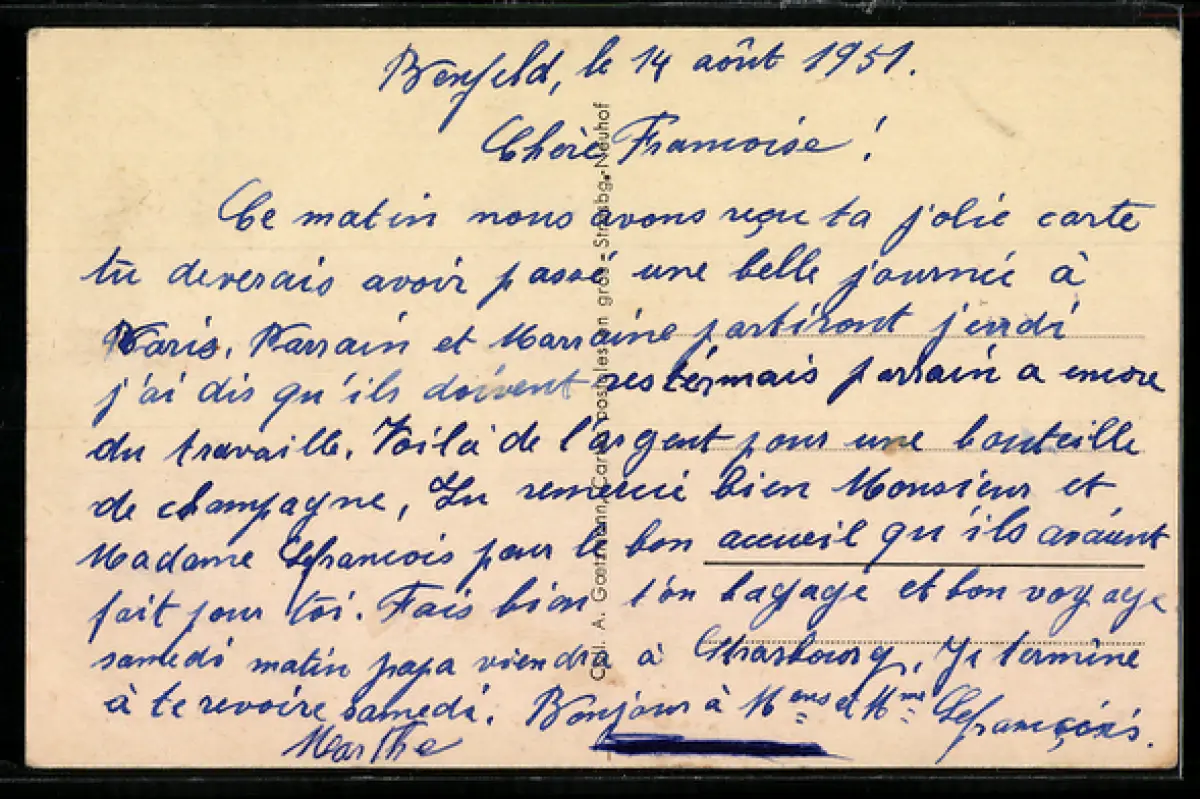 Benfeld, le 14 août 1951.
Chère Francoise !
Ce matin nous avons reçu ta jolie carte
tu deverais avoir passé une belle journée à
Paris. Parrain et Marraine partiront jeudi
j'ai dis qu'ils doivent rester mais parrain a encore
du travaille. Voilà de l'argent pour une bouteille
de champagne, Tu remercie bien Monsieur et
Madame Lefrancois pour le bon accueil qu'ils avaient
fait pour toi. Fais bien ton bagage et bon voyage
samedi matin papa viendra à Strasbourg. Je termine
à te revoire samedi. Bonjour à Mons et Mme Lefrançois.
Marthe
Coll. A. Gœtzmann, Cartes postales en gros - Strasbg.-Neuhof